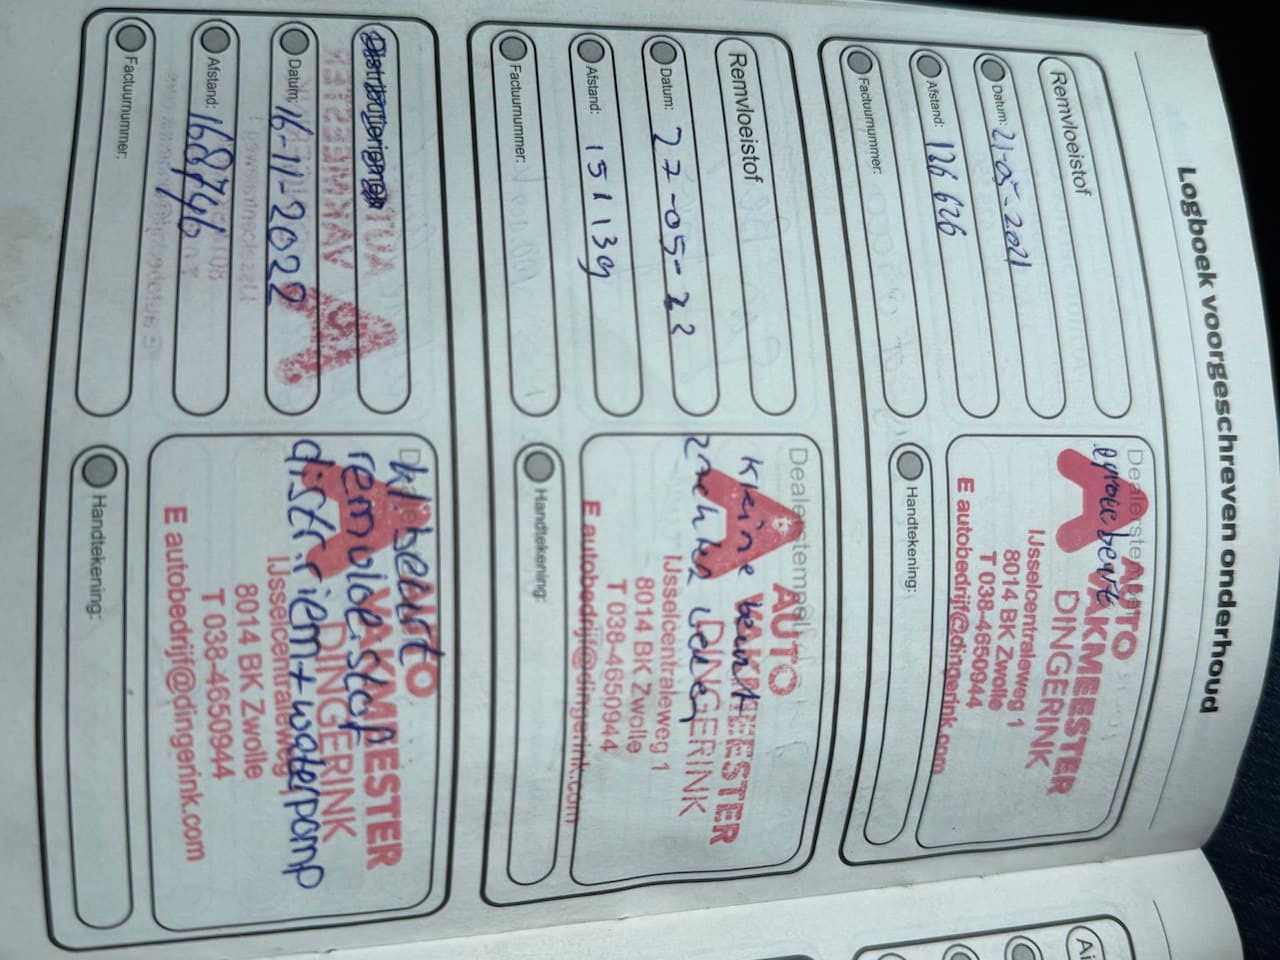 Logboek voorgeschreven onderhoud
Remvloeistof
Datum: 21-05-2021
Afstand: 126 626
Factuurnummer:
Dealerstempel
grote beurt
AUTO
VAKMEESTER
DINGERINK
IJsselcentraleweg 1
8014 BK Zwolle
T 038-4650944
E autobedrijf@dingerink.com
Handtekening:
Remvloeistof
Datum: 27-05-22
Afstand: 151139
Factuurnummer:
Dealerstempel
Kleine beurt
AUTO
VAKMEESTER
DINGERINK
IJsselcentraleweg 1
8014 BK Zwolle
T 038-4650944
E autobedrijf@dingerink.com
Handtekening:
Distributieriemen
Datum: 16-11-2022
Afstand: 168746
Factuurnummer:
kl beurt
remvloeistof
distr.riem + waterpomp
AUTO
VAKMEESTER
DINGERINK
IJsselcentraleweg
8014 BK Zwolle
T 038-4650944
E autobedrijf@dingerink.com
Handtekening:
Ai